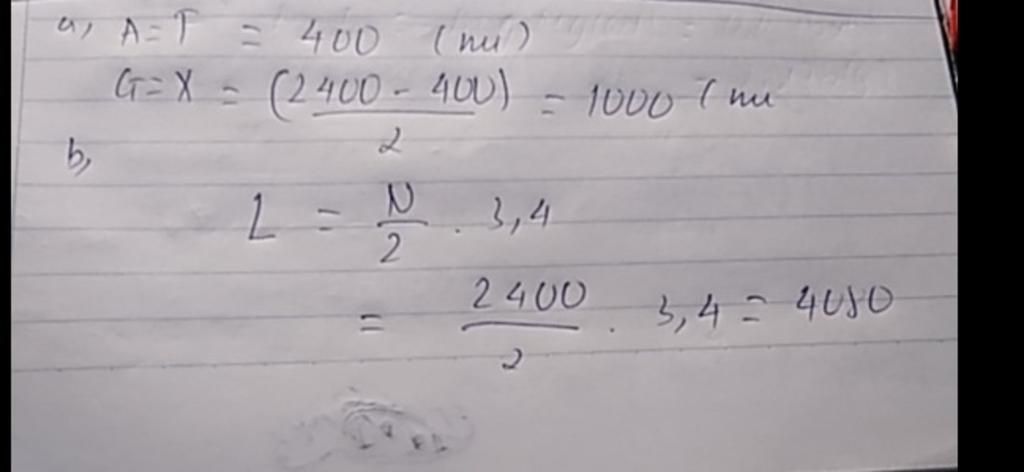 a, A=T = 400 (nu)
G=X = (2400 - 400) / 2 = 1000 (nu
b,
L = N/2 . 3,4
= 2400/2 . 3,4 = 4080